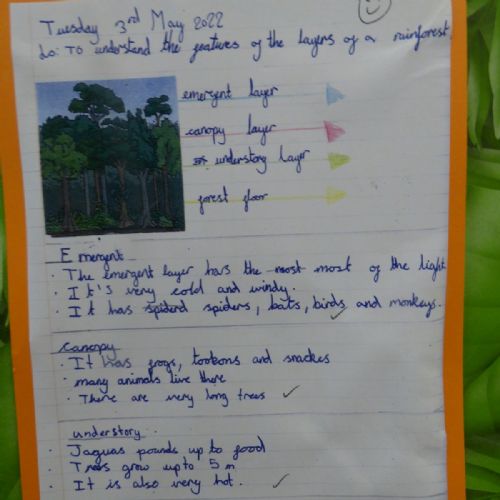 Tuesday 3rd May 2022
Lo: To understand the features of the layers of a rainforest.
emergent layer
canopy layer
understory layer
forest floor
Emergent
· The emergent layer has the most most of the light
· It's very cold and windy.
· It has spiderd spiders, bats, birds and monkeys.
canopy
· It has frogs, toobons and snackes
· many animals live there
· There are very long trees
understory
· Jaguas pounds up to food
· Trees grow up to 5 m
· It is also very hot.